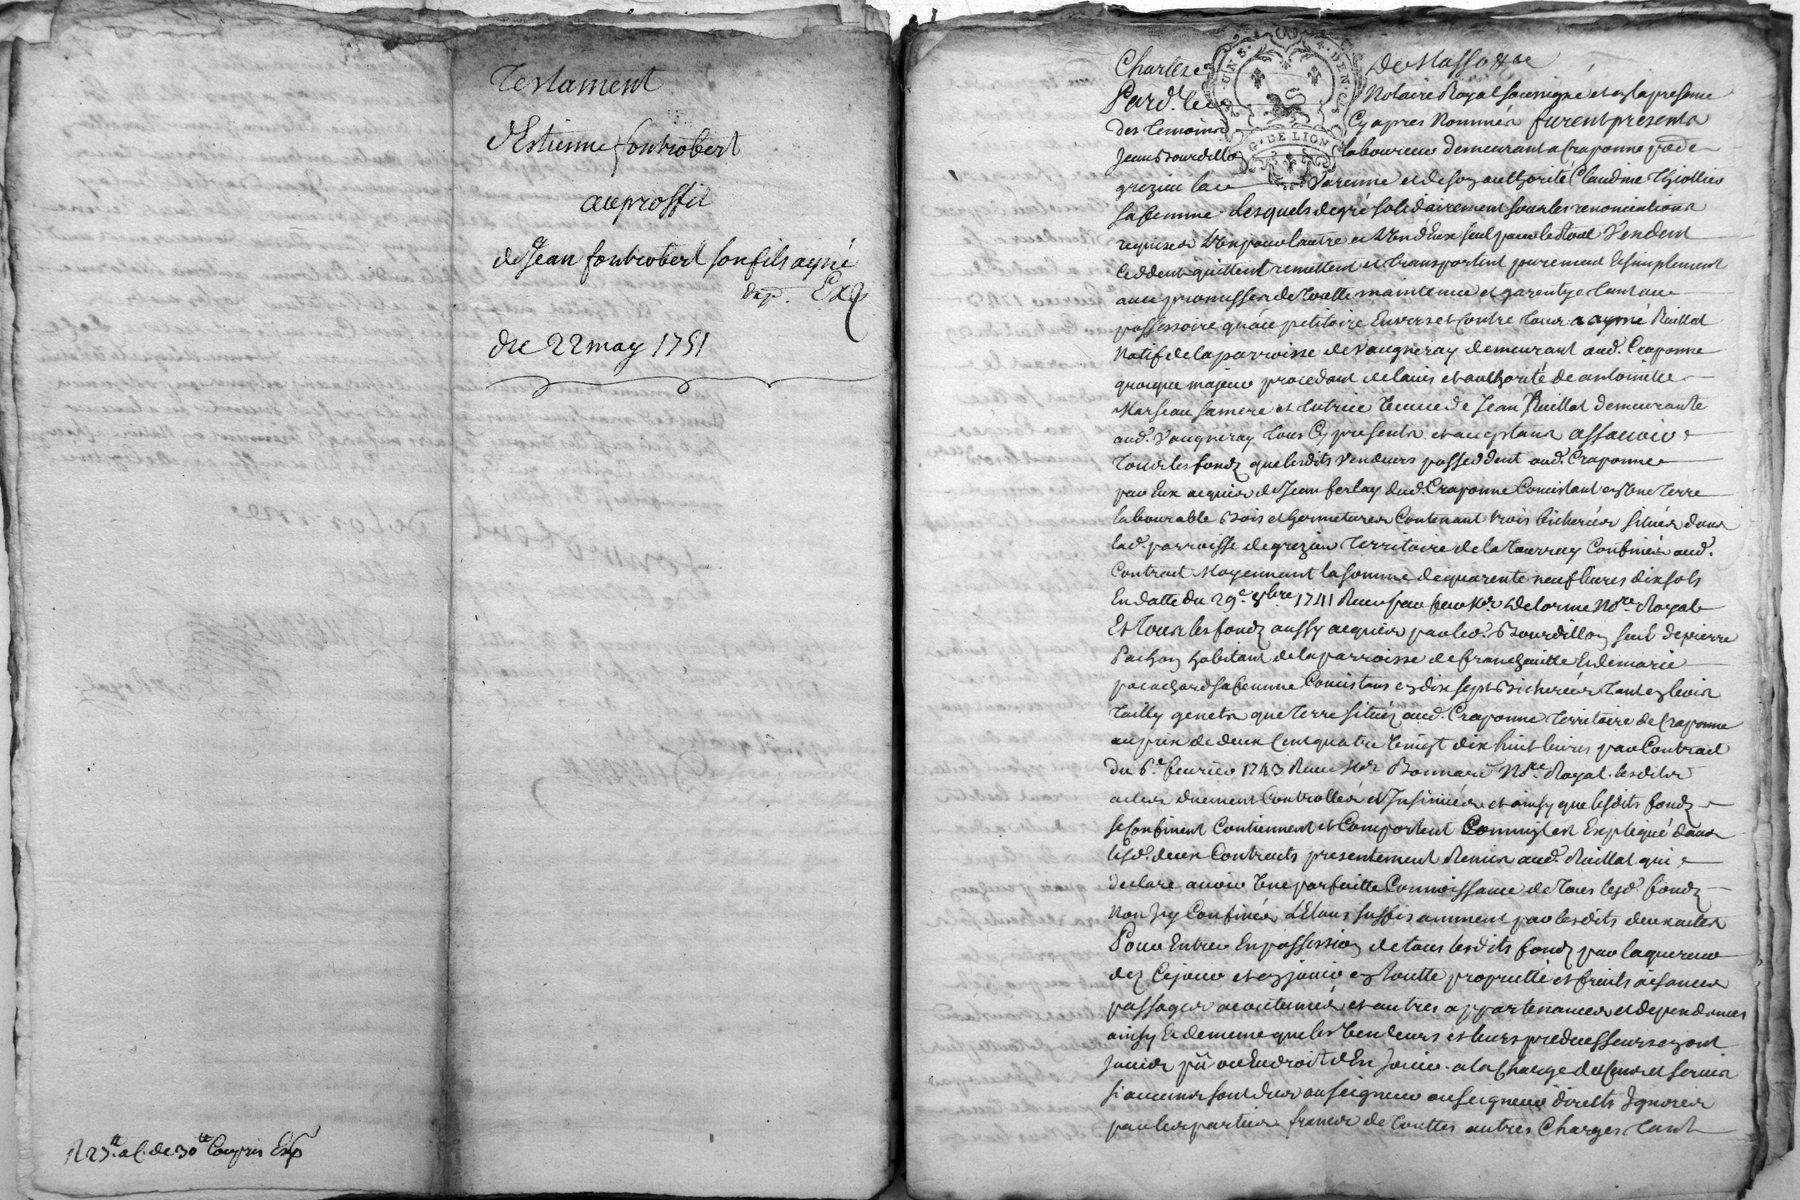 Testament
d'Estienne fontrobert
au proffit
de Jean fontrobert son fils ayné
exp. Exp
du 22 may 1751
R 23.tt a C. de 30tt Compris Exp
Charles de Massotte
Pard. le Notaire Royal soussigné et en la presence
des temoins Cy apres Nommés furent presents
Jean Bourdillon laboureur demeurant a Craponne psse de
grezieu la Varenne et de son authorité Claudine Thiollier
sa femme. Lesquels de gré solidairement sous les renonciations
requises L'un pour l'autre et L'un d'Eux seul pour le tout Vendent
Ceddent quittent remettent et transportent purement et simplement
avec promesse de toutte maintenue et garentye tant au
possessoire qu'au petitoire Envers et contre tous a aymé Ruillat
Natif de la parroisse de Vaugneray demeurant aud. Craponne
quoique majeur procedant de l'avis et authorité de antoinette
Marseau sa mere et tutrice Veuve de Jean Ruillat demeurante
aud. Vaugneray tous Cy presents et acceptans assavoir
tous les fondz que lesdits Vendeurs possedent aud. Craponne
par Eux acquis de Jean ferlay dud. Craponne Concistant en Une terre
labourable Bois et hermetures Contenant trois bicherées situés dans
lad. parroisse de grezieu territoire de la tourray Confinés aud.
Contract Moyennant la somme de quarente neuf livres dix sols
En datte du 29e 8bre 1741 Receu par feu Me Delorme Nore Royal
Et tous les fondz aussy acquis par led. Bourdillon seul de pierre
Pachon habitant de la parroisse de francheville Et de marie
sa femme Concistans en dix sept Bicherées tant en bois
tailly genets que terre situés aud. Craponne territoire de Craponne
au prix de deux Cent quatre Vingt dix huit livres par Contract
du 6e fevrier 1743 Receu Me Bonnard Nore Royal. lesdits
actes duement Controllés et Insinués et ainsy que lesdits fondz
se Confinent Contiennent et Comportent Comm'il est Expliqué dans
lesd. deux Contracts presentement Remis aud. Ruillat qui
declare avoir Une parfaitte Connoissance de tous lesd. fondz
Non Icy Confinés L'Etans suffisamment par lesdits deux actes
Pour Entrer En possession de tous lesdits fondz par l'aquereur
dez Cejour et en jouir en toutte proprietté et fruits aisances
passages acoutumés et autres appartenances et dependances
ainsy Et de meme que les Vendeurs et leurs predecesseurs en ont
Jouis pû ou Eu droit d'En Jouir. a la Charge des Cens et servis
si aucuns sont dus au seigneur ou seigneurs directs Ignorés
par les parties francs de touttes autres Charges tant